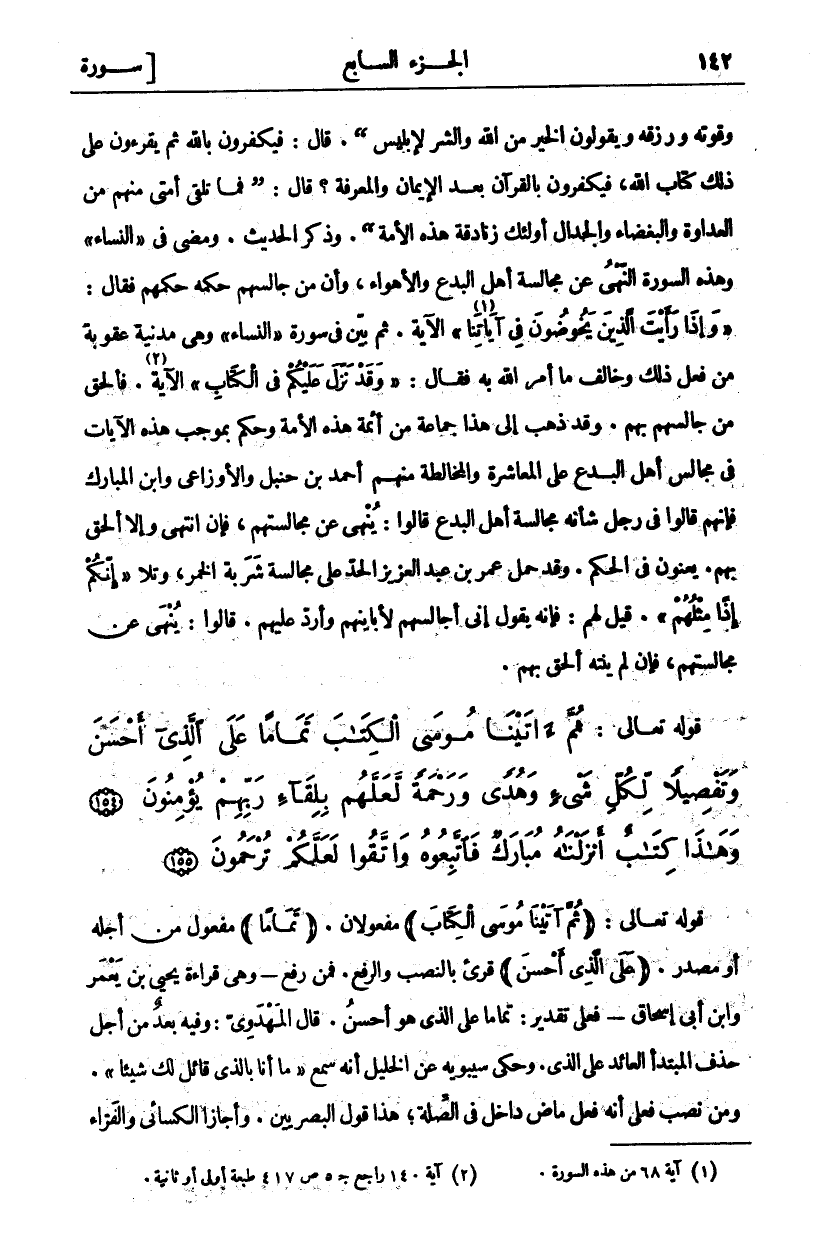 ١٤٢ الجزء السابع [ سورة
وقوته ورزقه ويقولون الخير من الله والشر لإبليس “ . قال : فيكفرون بالله ثم يقرءون على
ذلك كتاب الله، فيكفرون بالقرآن بعد الإيمان والمعرفة ؟ قال : ” فما تلقى أمتى منهم من
العداوة والبغضاء والجدال أولئك زنادقة هذه الأمة “ . وذكر الحديث . ومضى فى «النساء»
وهذه السورة النَّهْىُ عن مجالسة أهل البدع والأهواء ، وأن من جالسهم حكمه حكمهم فقال :
« وَإِذَا رَأَيْتَ الَّذِينَ يَخُوضُونَ فِى آيَاتِنَا (١) » الآية . ثم بيّن فى سورة «النساء» وهى مدنية عقوبة
من فعل ذلك وخالف ما أمر الله به فقال : « وَقَدْ نَزَّلَ عَلَيْكُمْ فى الْكِتَابِ » الآية (٢) . فألحق
من جالسهم بهم . وقد ذهب إلى هذا جماعة من أئمة هذه الأمة وحكم بموجب هذه الآيات
فى مجالس أهل البدع على المعاشرة والمخالطة منهم أحمد بن حنبل والأوزاعى وابن المبارك
فإنهم قالوا فى رجل شأنه مجالسة أهل البدع قالوا : يُنْهى عن مجالستهم ، فإن انتهى وإلا ألحق
بهم. يعنون فى الحكم . وقد حمل عمر بن عبد العزيز الحدّ على مجالسة شَرَبة الخمر، وتلا « إِنَّكُمْ
إِذًا مِثْلُهُمْ » . قيل لهم : فإنه يقول إنى أجالسهم لأباينهم وأردّ عليهم . قالوا : يُنْهَى عن
مجالستهم، فإن لم ينته ألحق بهم .
قوله تعالى : ثُمَّ ءَاتَيْنَا مُوسَى الْكِتَٰبَ تَمَامًا عَلَى ٱلَّذِىٓ أَحْسَنَ
وَتَفْصِيلًا لِّكُلِّ شَىْءٍ وَهُدًى وَرَحْمَةً لَّعَلَّهُم بِلِقَآءِ رَبِّهِمْ يُؤْمِنُونَ ١٥٤
وَهَٰذَا كِتَٰبٌ أَنزَلْنَٰهُ مُبَارَكٌ فَاتَّبِعُوهُ وَاتَّقُوا لَعَلَّكُمْ تُرْحَمُونَ ١٥٥
قوله تعالى : ﴿ ثُمَّ آتَيْنَا مُوسَى الْكِتَابَ ﴾ مفعولان . ﴿ تَمَامًا ﴾ مفعول من أجله
أو مصدر . ﴿ عَلَى الَّذِى أَحْسَنَ ﴾ قرئ بالنصب والرفع . فمن رفع — وهى قراءة يحيى بن يَعْمَر
وابن أبى إسحاق — فعلى تقدير : تماما على الذى هو أحسنُ . قال المَهْدَوِىّ : وفيه بعدٌ من أجل
حذف المبتدأ العائد على الذى. وحكى سيبويه عن الخليل أنه سمع « ما أنا بالذى قائل لك شيئا » .
ومن نصب فعلى أنه فعل ماض داخل فى الصِّلة ؛ هذا قول البصريين . وأجازا الكسائى والفرّاء
(١) آية ٦٨ من هذه السورة . (٢) آية ١٤٠ راجع جـ ٥ ص ٤١٧ طبعة أولى أو ثانية .